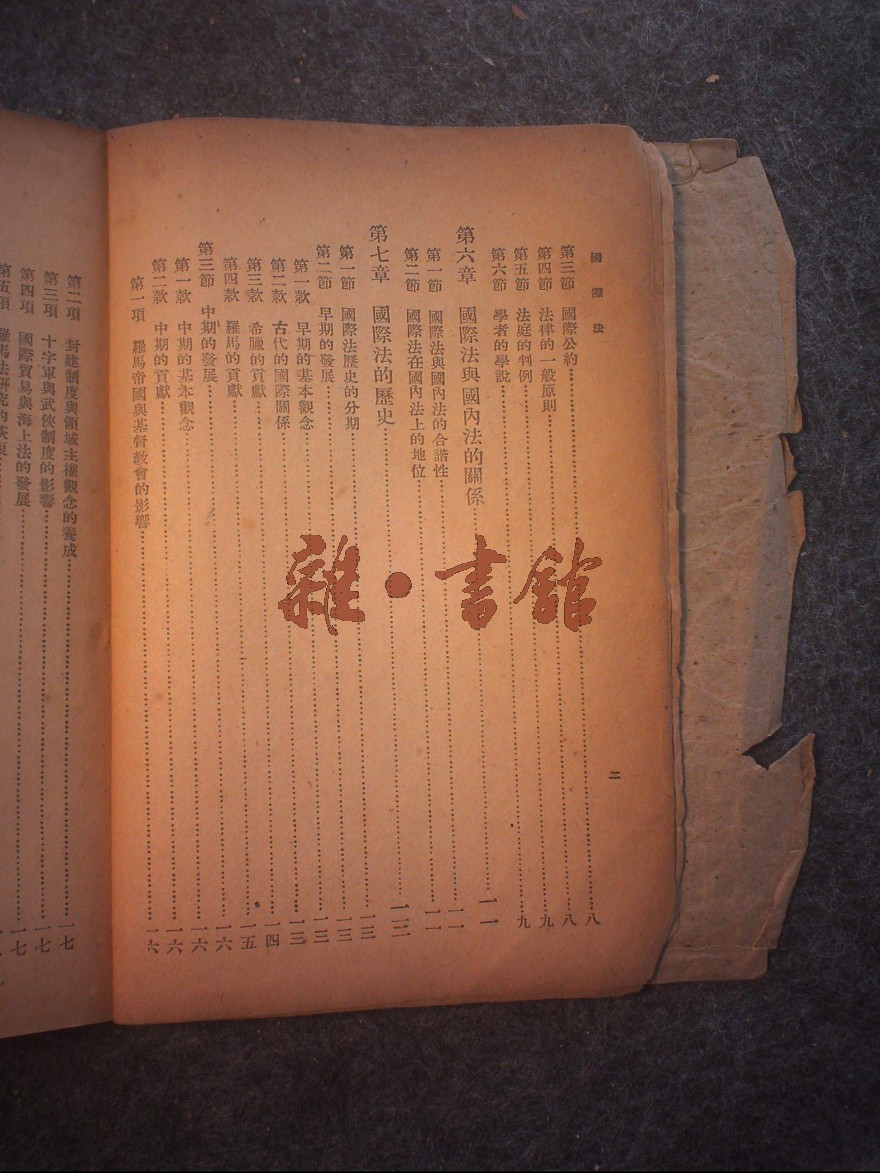 國際法 二
第三節 國際公約……八
第四節 法律的一般原則……八
第五節 法庭的判例……九
第六節 學者的學說……九
第六章 國際法與國內法的關係……一一
第一節 國際法與國內法的合諧性……一一
第二節 國際法在國內法上的地位……一一
第七章 國際法的歷史……一三
第一節 國際法歷史的分期……一三
第二節 早期的發展……一三
第一款 早期的基本觀念……一三
第二款 古代的國際關係……一四
第三款 希臘的貢獻……一五
第四款 羅馬的貢獻……一六
第三節 中期的發展……一六
第一款 中期的基本觀念……一六
第二款 中期的貢獻……一六
第一項 羅馬帝國與基督教會的影響……一六
第二項 封建制度與領域主權觀念的養成……一七
第三項 十字軍與武俠制度的影響……一七
第四項 國際貿易與海上法的發展……一七
第五項 羅馬法研究的
雜·書館